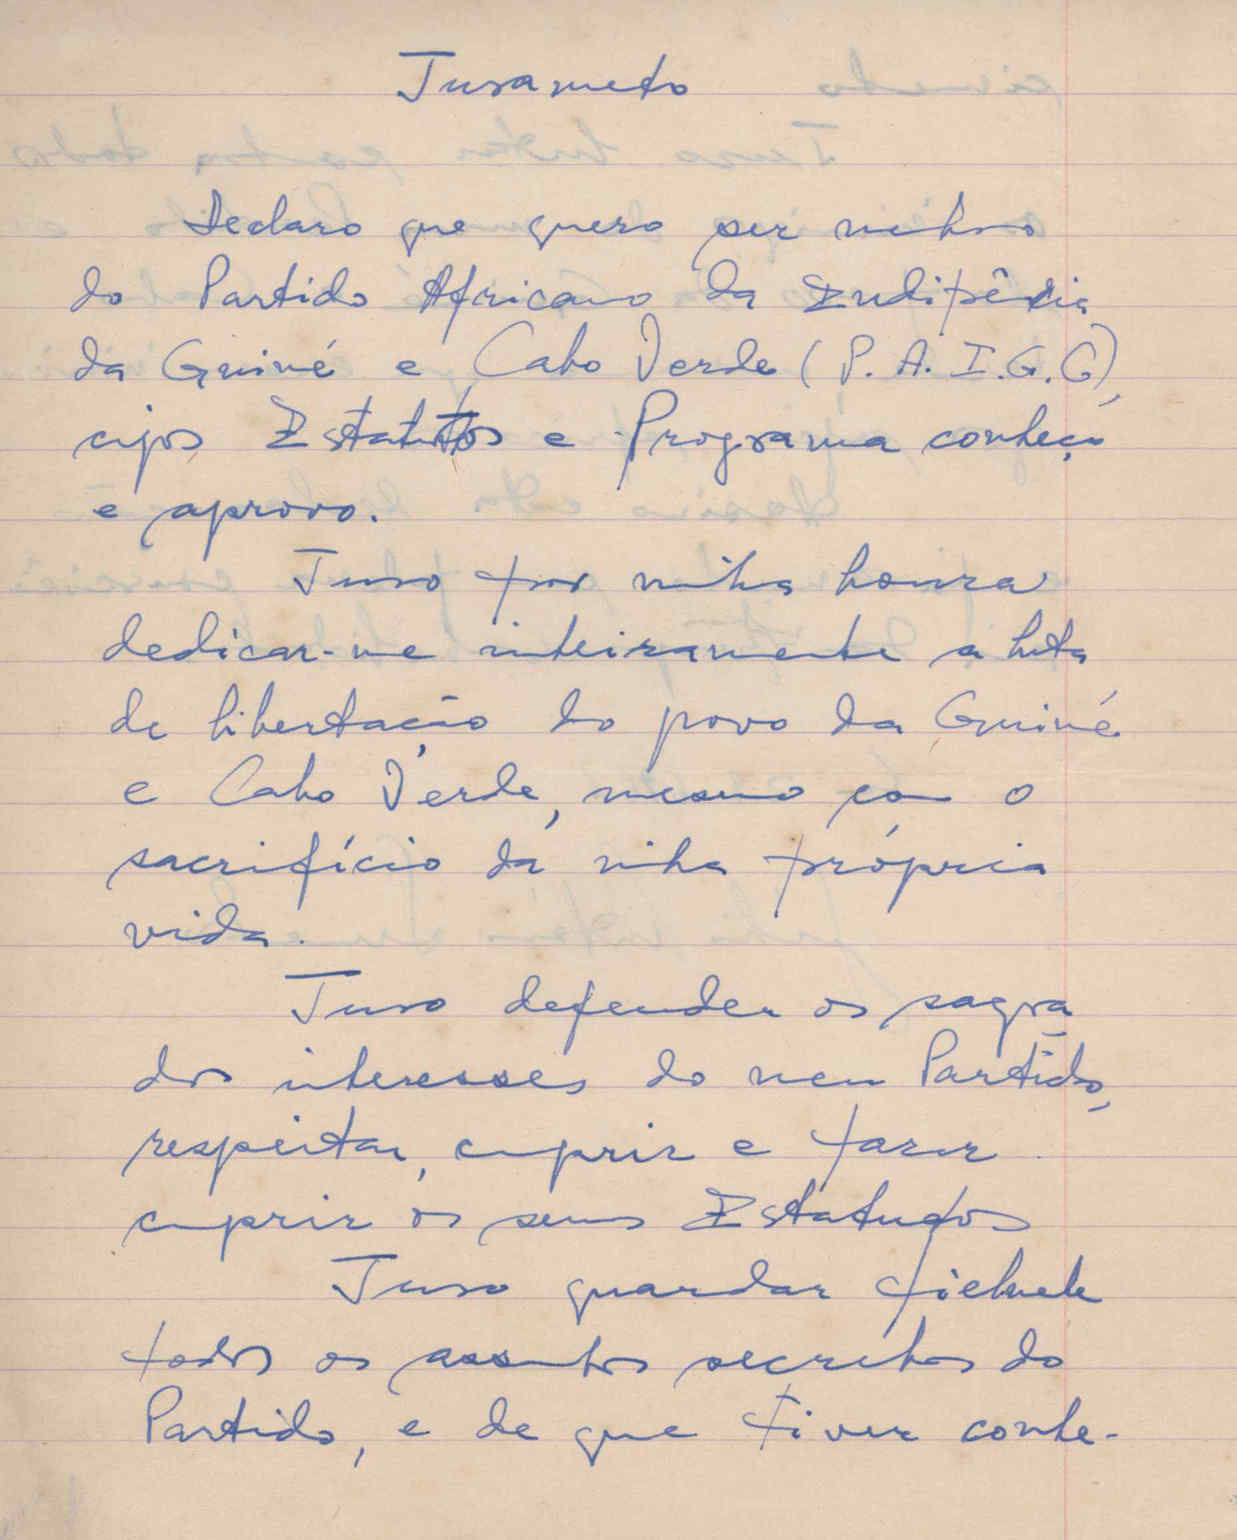 Juramento
Declaro que quero ser membro
do Partido Africano da Indipência
da Guiné e Cabo Verde (P. A. I. G. C),
cujos Estatutos e Programa conheço
e aprovo.
Juro por minha honra
dedicar-me inteiramente a luta
de libertação do povo da Guiné
e Cabo Verde, mesmo com o
sacrifício da minha própria
vida.
Juro defender os sagra
dos interesses do meu Partido,
respeitar, cumprir e fazer
cumprir os seus Estatutos
Juro guardar fielmente
todos os assuntos secretos do
Partido, e de que tiver conhe-